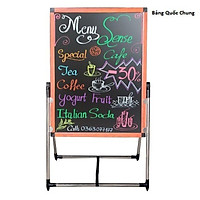 Bảng Quốc Chung
Menu Sense
Special Cafe
Tea
-30%
Coffee
yogurt fruit
Italian Soda
Call: 0363077412